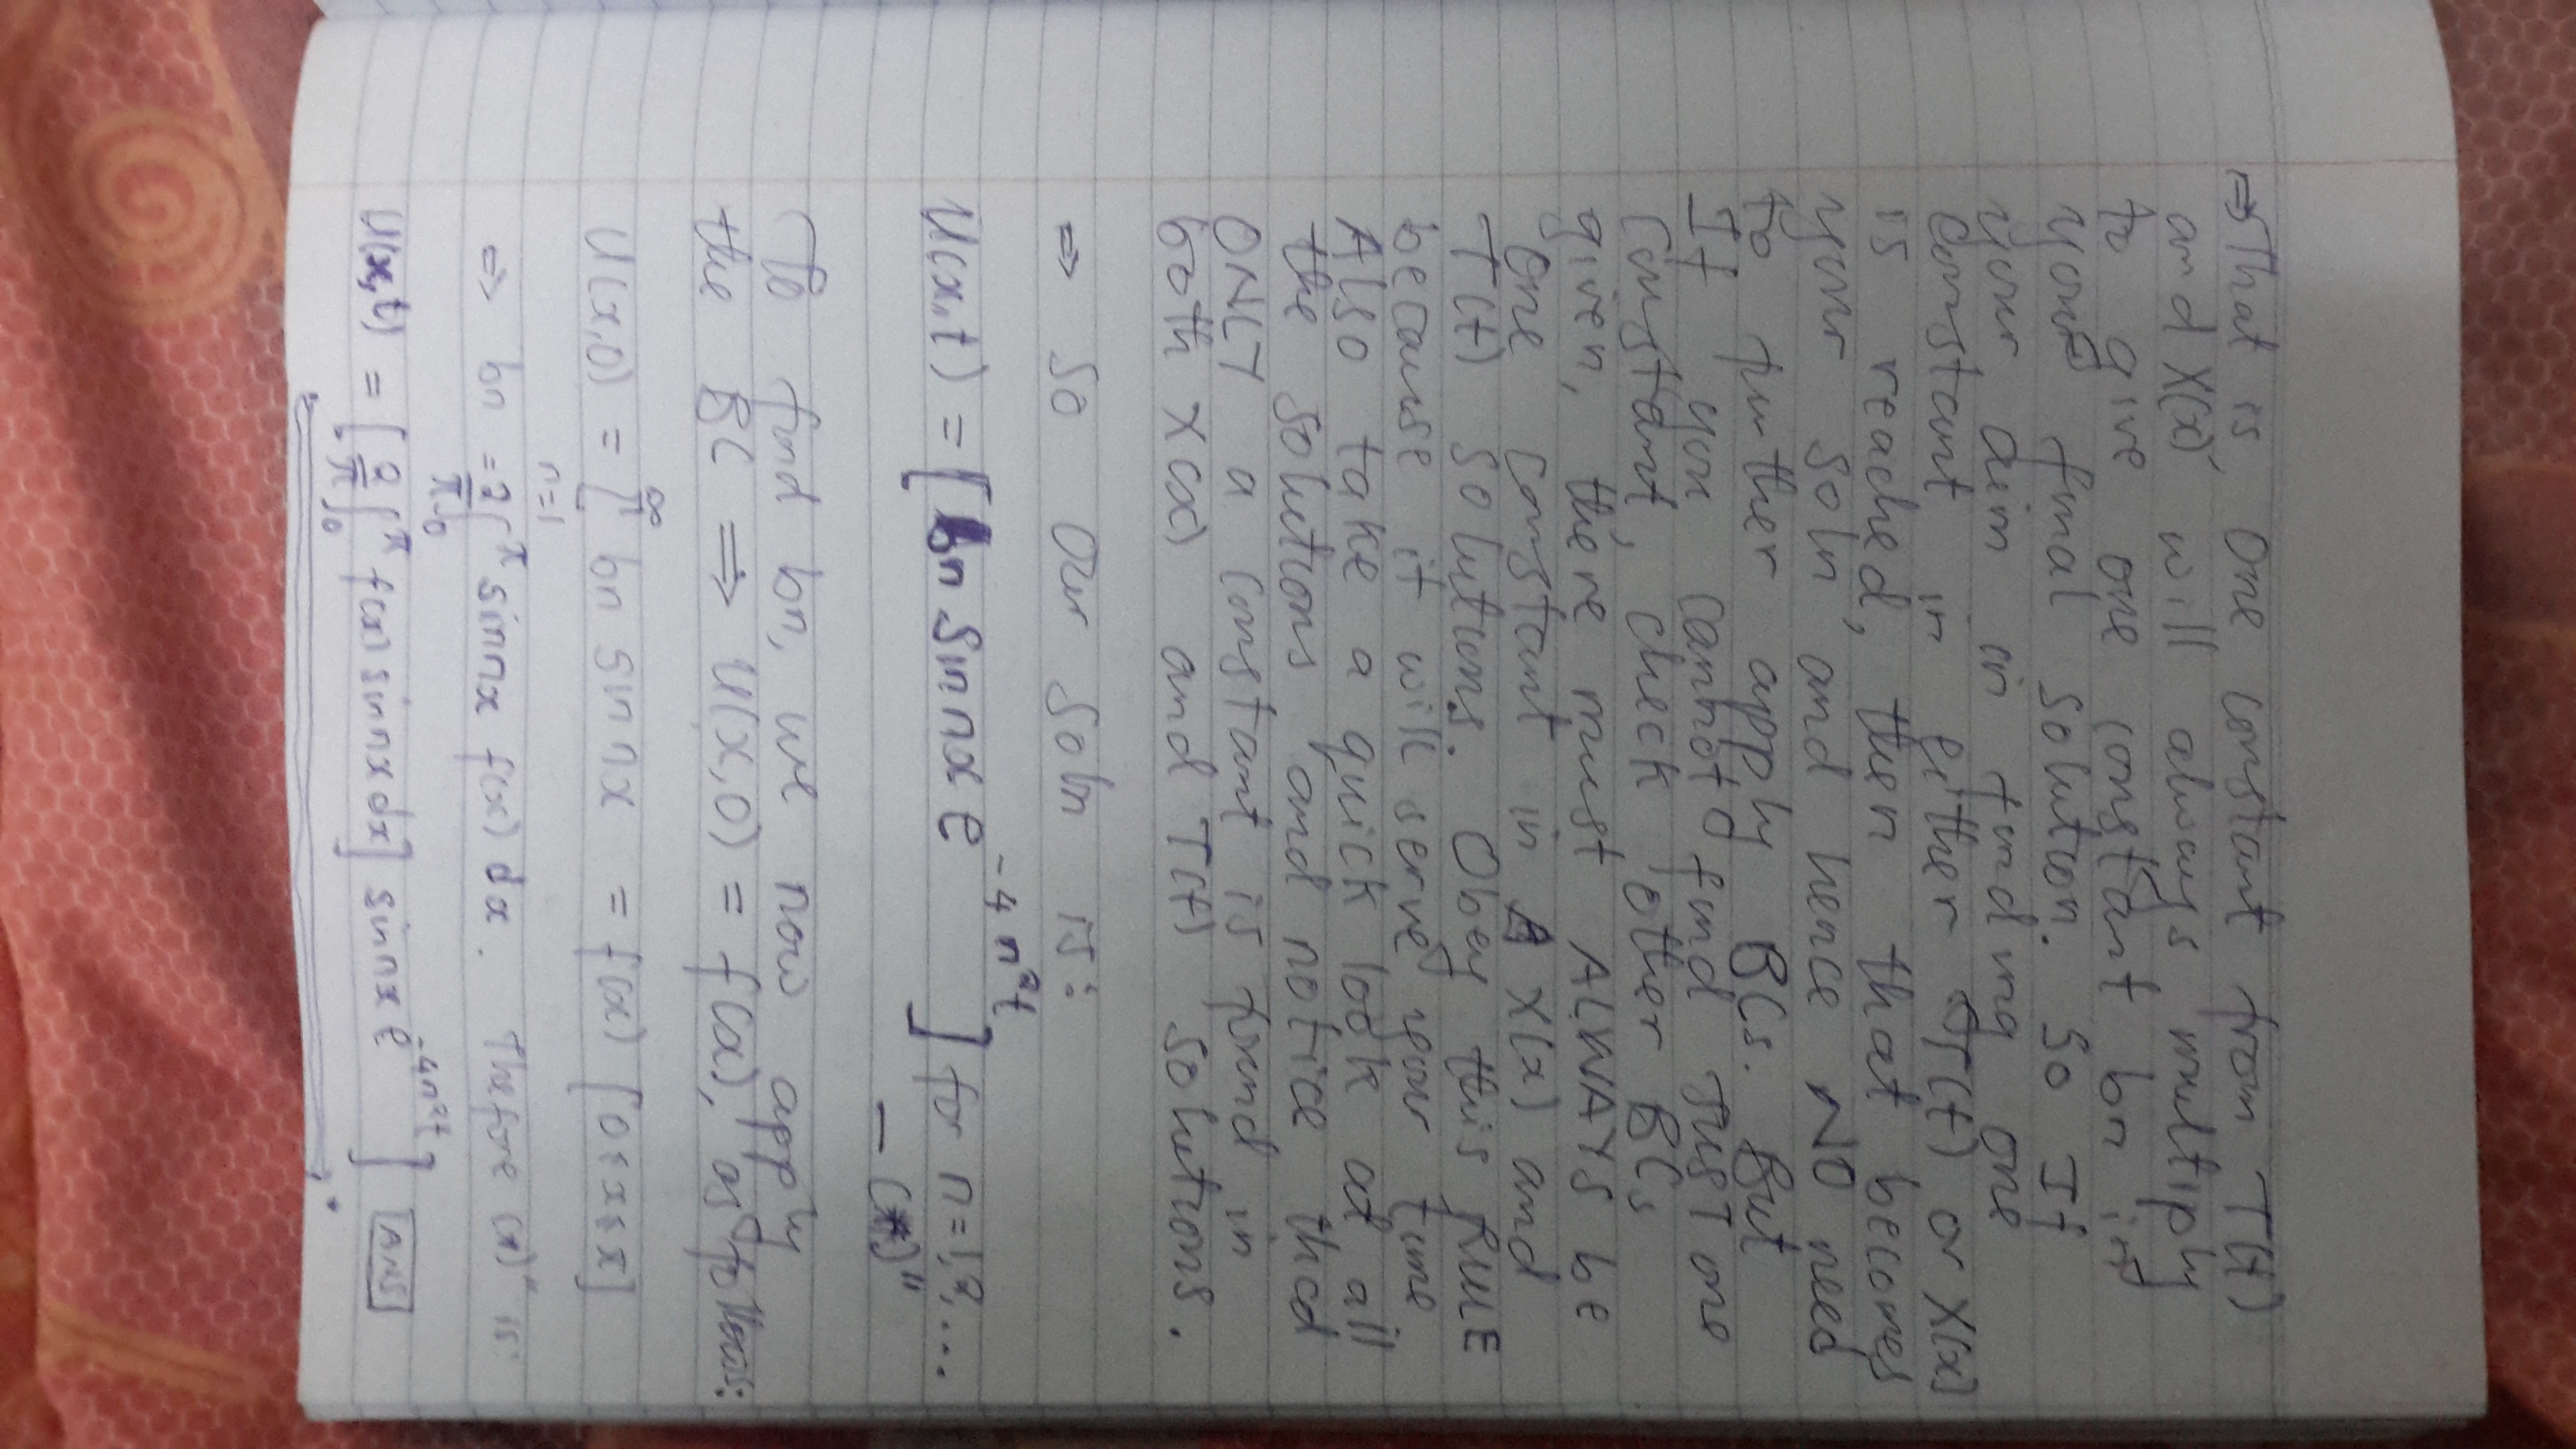 ⇒ That is, One constant from T(t)
and X(x) will always multiply
to give one constant bn in
your final solution. So If
your aim in finding one
constant in Either T(t) or X(x)
is reached, then that becomes
your soln, and hence NO need
to further apply BCs. But
If you cannot find JUST one
constant, check other BCs
given, there must ALWAYS be
One constant in X(x) and
T(t) solutions. Obey this RULE
because it will serve your time
Also take a quick look at all
the solutions and notice that
ONLY a constant is found in
both X(x) and T(t) solutions.
⇒ So Our soln is:
U(x,t) = [bn Sin nx e^{-4n²t}] for n=1,2,....
— (*)"
To find bn, we now apply
the BC ⟹ U(x,0) = f(x), as follows:
U(x,0) = [∞ n=1 bn sin nx = f(x) [0≤x≤x]
⇒ bn = 2/π ∫₀^π sin nx f(x) dx. Therefore (*)" is:
U(x,t) = [2/π ∫₀^π f(x) sin nx dx] sin nx e^{-4n²t}] ANS